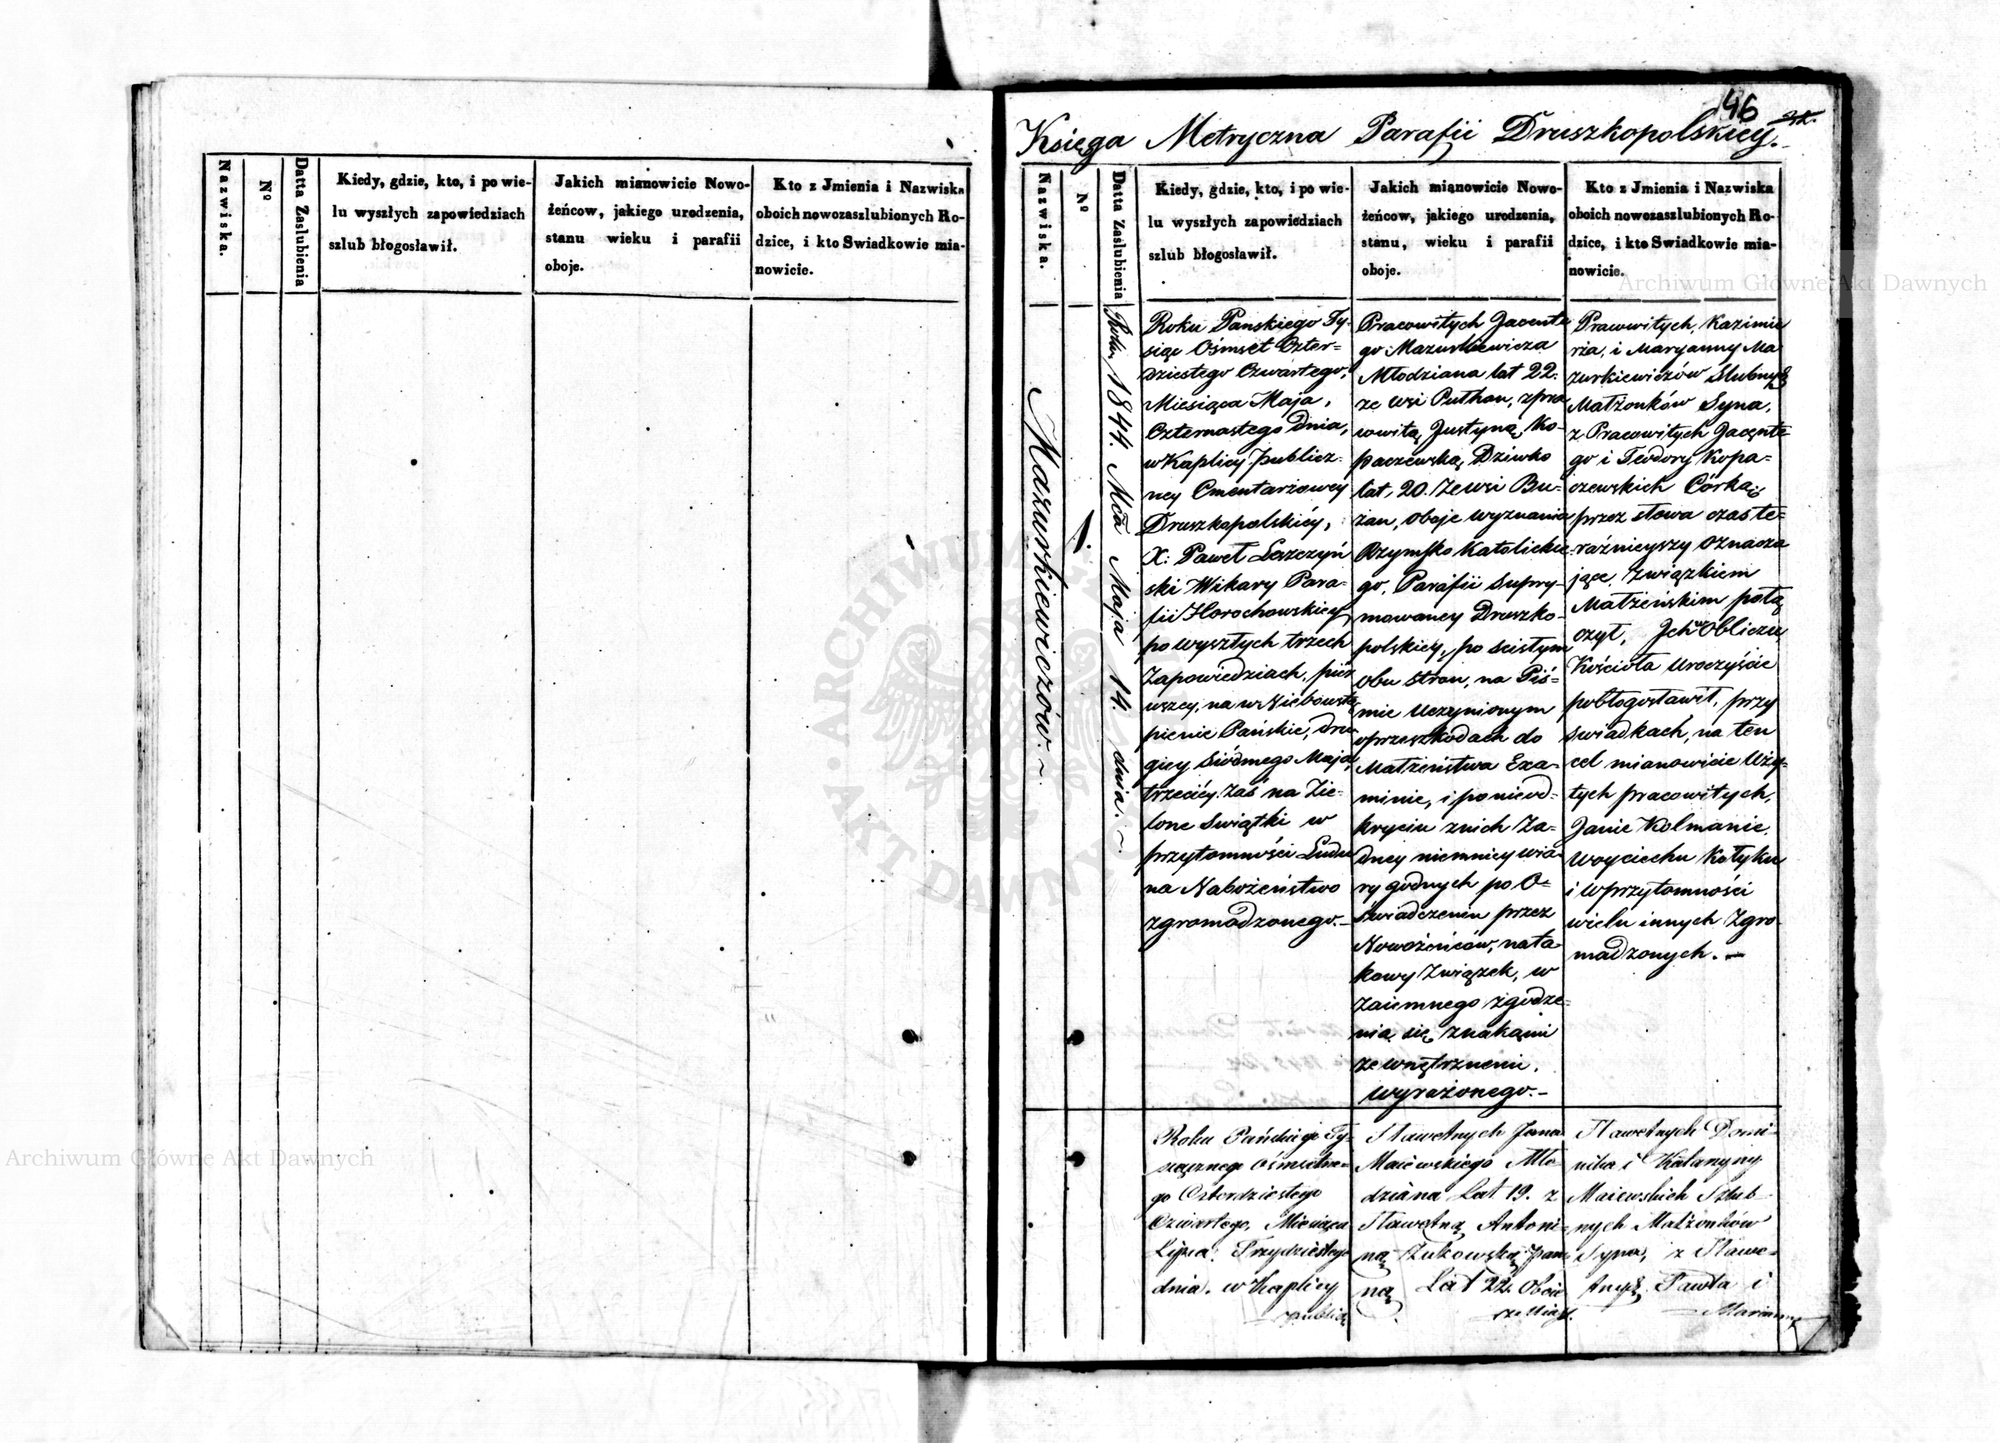 Nazwiska.
Nº
Datta Zaslubienia
Kiedy, gdzie, kto, i po wie-
lu wyszłych zapowiedziach
szlub błogosławił.
Jakich mianowicie Nowo-
żeńcow, jakiego urodzenia,
stanu wieku i parafii
oboje.
Kto z Jmienia i Nazwiska
oboich nowozaszlubionych Ro-
dzice, i kto Swiadkowie mia-
nowicie.
46
Księga Metryczna Parafii Druszkopolskiey.
Nazwiska.
Nº
Data Zaslubienia
Kiedy, gdzie, kto, i po wie-
lu wyszłych zapowiedziach
szlub błogosławił.
Jakich mianowicie Nowo-
żeńcow, jakiego urodzenia,
stanu, wieku i parafii
oboje.
Kto z Jmienia i Nazwiska
oboich nowozaszlubionych Ro-
dzice, i kto Swiadkowie mia-
nowicie.
Mazurkiewiczów.~
1.
Roku 1844. Mca Maja 14. dnia.~
Roku Panskiego Ty-
siąc Ośmset Czter=
dziestego Czwartego,
Miesiąca Maja,
Czternastego dnia,
w Kaplicy publicz-
ney Cmentarzowey
Druszkopolskiéy,
X: Paweł Leszczyń
ski Wikary Para-
fii Horochowskiey
po wyszłych trzech
Zapowiedziach, pier
wszey, na w Niebowstą
pienie Pańskie, dru
giey Siódmego Maja,
trzeciéy zaś na Zie-
lone Swiątki w
przytomności Ludu
na Nabożeństwo
zgromadzonego.—
Pracowitych Jacente
go Mazurkiewicza
Młodziana lat 22.
ze wsi Puthan, z pra
cowitą Justyną Ko-
paczewską Dziwko
lat, 20. ze wsi Bu-
żan, oboje wyznania
Rzymsko Katolickie
go, Parafii supry-
mowaney Druszko-
polskiey, po scistym
obu stron, na Piś=
mie uczynionym
o przeszkodach do
Małżeństwa Exa-
minie, i po nieod-
kryciu z nich ża-
dney niemniey wia-
ry godnych po O=
świadczeniu przez
Nowożeńców, na ta
kowy Związek, w
zaiemnego zgodze=
nia się, znakami
zewnętrznemi.
wyrażonego.—
Pracowitych, Kazimie
rza, i Maryanny Ma
zurkiewiczów Slubnych
Małżonków Syna,
z Pracowitych Jacente
go i Teodory Kopa-
czewskich Córką;
przez słowa czas te-
raźnieyszy oznacza
jące, związkiem
Małżeńskim połą
czył, Jch w Obliczu
Kościoła uroczyście
pobłogosławił, przy
swiadkach, na ten
cel mianowicie uży-
tych pracowitych,
Janie Kolmanie,
Woyciechu Kotyku
i w przytomności
wielu innych zgro-
madzonych.—
Roku Pańskiego Ty-
siącznego Ośmsetne-
go Czterdziestego
Czwartego, Miesiąca
Lipca, Trzydziestego
dnia. w Kaplicy
publicz
Sławetnych Jana
Maiewskiego Mło-
dziana Lat 19. z
Sławetną Antoni-
ną Żukowską Pan-
ną Lat 22. Oboie
z Miast.
Sławetnych Domi-
nika i Katarzyny
Maiewskich Szlub-
nych Małżonków
Syna, z Sławe-
tnych Pawła i
Marianny
Archiwum Główne Akt Dawnych
Archiwum Główne Akt Dawnych
ARCHIWUM GŁÓWNE AKT DAWNYCH